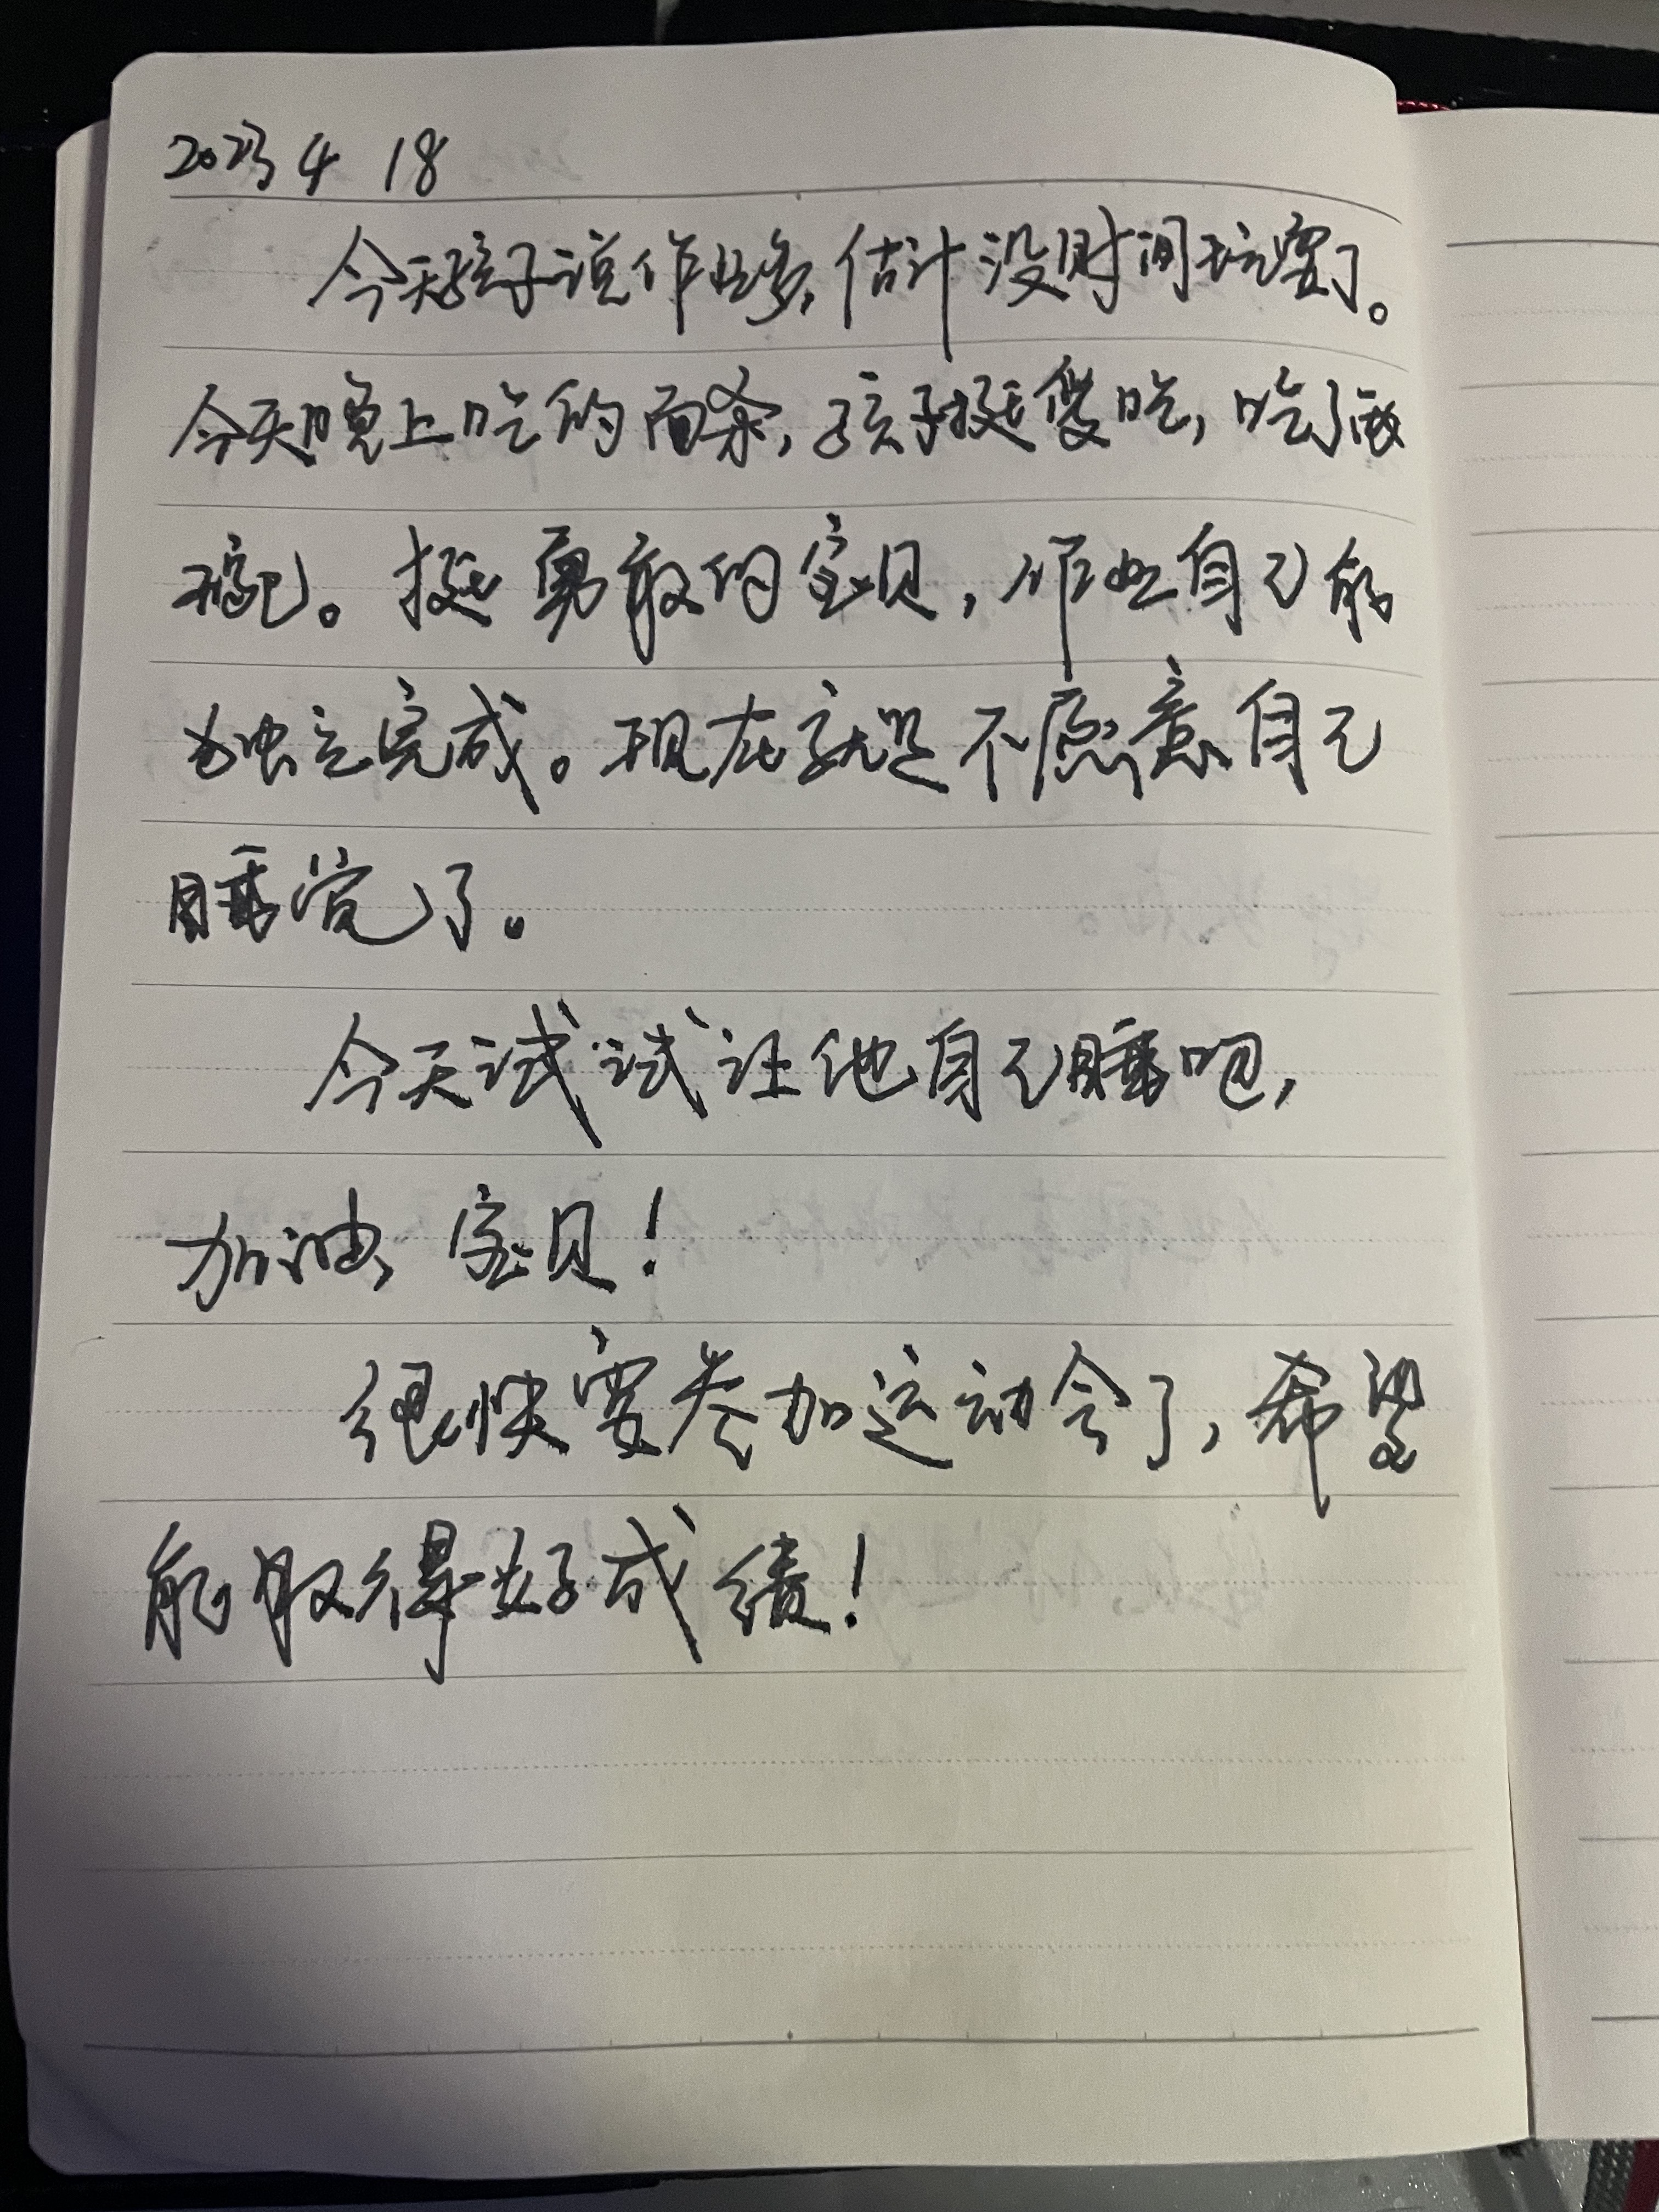 2023 4 18
今天孩子说作业多,估计没时间玩耍了。
今天晚上吃的面条,孩子挺爱吃,吃了两
碗。挺勇敢的宝贝,作业自己能
独立完成。现在就是不愿意自己
睡觉了。
今天试试让他自己睡吧,
加油,宝贝!
很快要参加运动会了,希望
能取得好成绩!